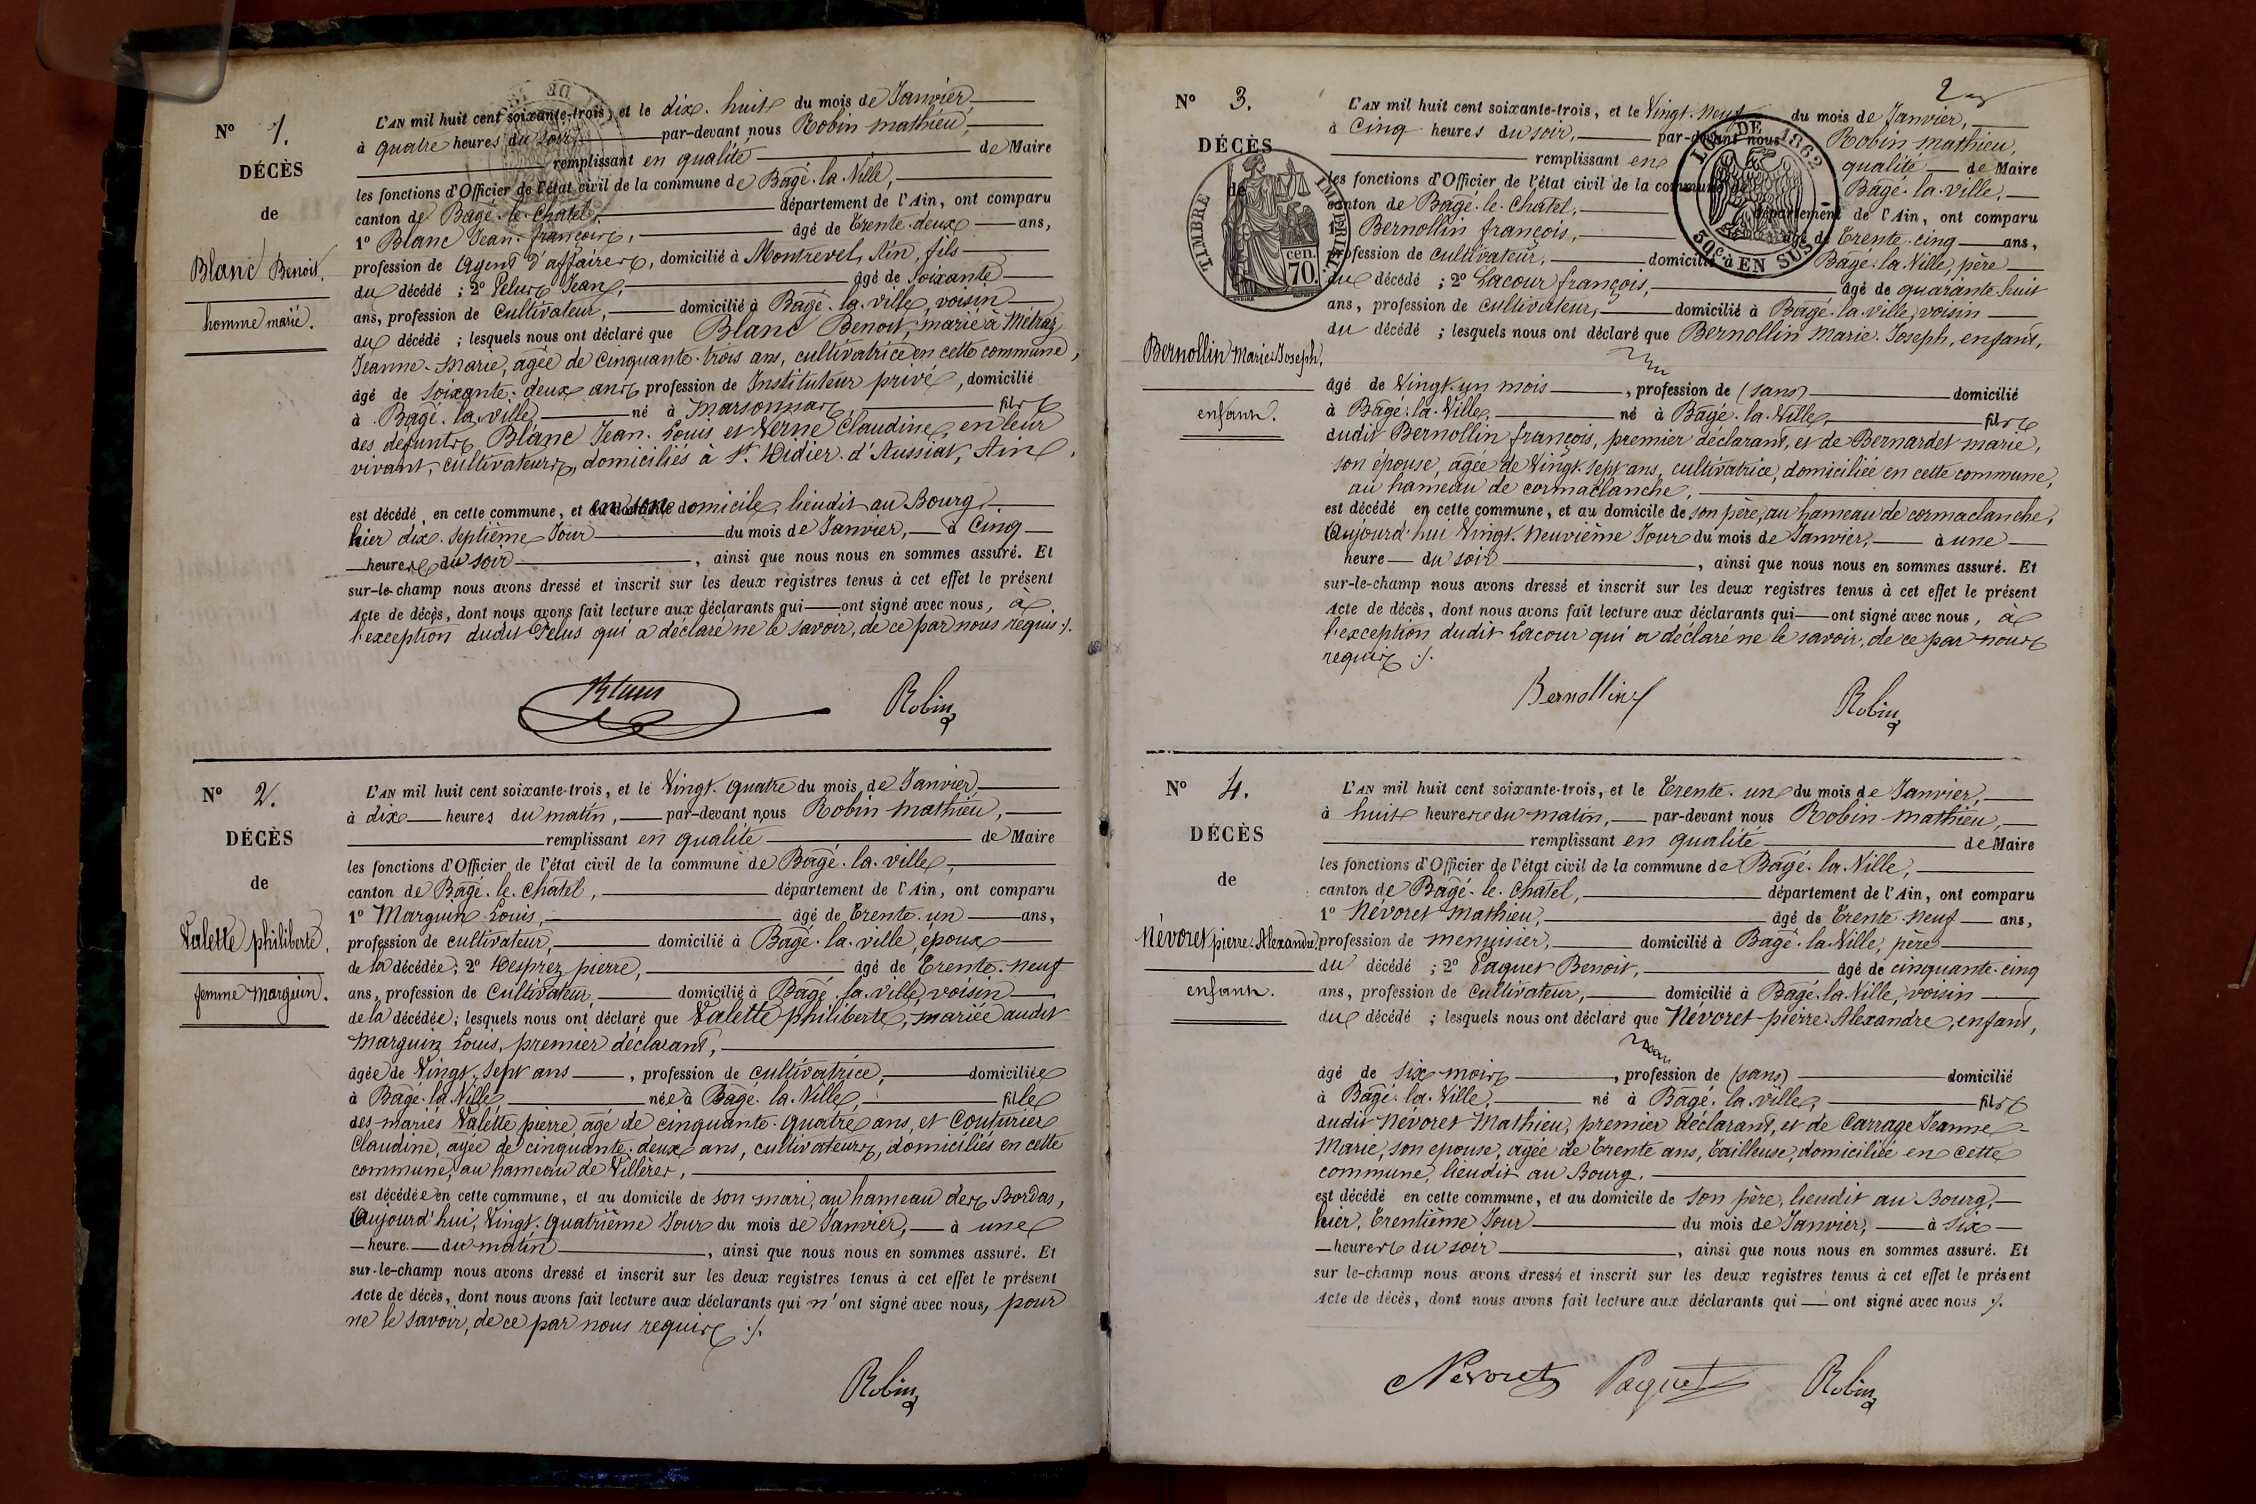 N° 1.
DÉCÈS
de
Blanc Benoit.
homme marié.
L'AN mil huit cent soixante-trois, et le dix-huit du mois de Janvier,
à quatre heures du soir, par-devant nous Robin mathieu,
remplissant en qualité de Maire
les fonctions d'Officier de l'état civil de la commune de Bâgé-la-Ville,
canton de Bâgé-le-Châtel, département de l'Ain, ont comparu
1° Blanc Jean-françois, âgé de trente-deux ans,
profession de agent d'affaires, domicilié à Montrevel, Ain, fils
du décédé ; 2° Jean, âgé de soixante
ans, profession de cultivateur, domicilié à Bâgé-la-ville, voisin
du décédé ; lesquels nous ont déclaré que Blanc Benoit, marié à Métraz
Jeanne-Marie, âgée de cinquante-trois ans, cultivatrice en cette commune,
âgé de soixante-deux ans, profession de Instituteur privé, domicilié
à Bâgé-la-ville né à marsonnas, fils
des défunts Blanc Jean-Louis et Verne Claudine, en leur
vivant, cultivateurs, domiciliés à St Didier-d'Aussiat, Ain,
est décédé en cette commune, et en son domicile, lieudit au Bourg,
hier dix-septième Jour du mois de Janvier, à cinq
heures du soir, ainsi que nous nous en sommes assuré. Et
sur-le-champ nous avons dressé et inscrit sur les deux registres tenus à cet effet le présent
Acte de décès, dont nous avons fait lecture aux déclarants qui ont signé avec nous, à
l'exception dudit qui a déclaré ne le savoir, de ce par nous requis ./.
Blanc Robin
N° 2.
DÉCÈS
de
Valette philiberte.
femme marguin.
L'AN mil huit cent soixante-trois, et le Vingt-quatre du mois de Janvier,
à dix heures du matin, par-devant nous Robin mathieu,
remplissant en qualité de Maire
les fonctions d'Officier de l'état civil de la commune de Bâgé-la-ville,
canton de Bâgé-le-châtel, département de l'Ain, ont comparu
1° Marguin Louis, âgé de trente-un ans,
profession de cultivateur, domicilié à Bâgé-la-ville, époux
de la décédée ; 2° Desprez pierre, âgé de trente-neuf
ans, profession de cultivateur, domicilié à Bâgé-la-ville, voisin
de la décédée ; lesquels nous ont déclaré que Valette philiberte, mariée audit
marguin Louis, premier déclarant,
âgée de Vingt-sept ans, profession de cultivatrice, domiciliée
à Bâgé-la-Ville née à Bâgé-la-Ville, fille
des mariés Valette pierre, âgé de cinquante-quatre ans, et Couturier
Claudine, âgée de cinquante-deux ans, cultivateurs, domiciliés en cette
commune, au hameau de Villères,
est décédée en cette commune, et au domicile de son mari, au hameau des Bordas,
Aujourd'hui, Vingt-quatrième Jour du mois de Janvier, à une
heure du matin, ainsi que nous nous en sommes assuré. Et
sur-le-champ nous avons dressé et inscrit sur les deux registres tenus à cet effet le présent
Acte de décès, dont nous avons fait lecture aux déclarants qui n'ont signé avec nous, pour
ne le savoir, de ce par nous requis ./.
Robin
2
N° 3.
DÉCÈS
de
TIMBRE IMPERIAL
70 cen.
LOI DE 1862
50c. EN SUS
Bernollin Marie-Joseph,
enfant.
L'AN mil huit cent soixante-trois, et le Vingt-neuf du mois de Janvier,
à cinq heures du soir, par-devant nous Robin mathieu,
remplissant en qualité de Maire
les fonctions d'Officier de l'état civil de la commune de Bâgé-la-ville,
canton de Bâgé-le-châtel, département de l'Ain, ont comparu
1° Bernollin françois, âgé de trente-cinq ans,
profession de cultivateur, domicilié à Bâgé-la-Ville, père
du décédé ; 2° Lacour françois, âgé de quarante-huit
ans, profession de cultivateur, domicilié à Bâgé-la-ville, voisin
du décédé ; lesquels nous ont déclaré que Bernollin Marie-Joseph, enfant,
âgé de Vingt-un mois, profession de (sans) domicilié
à Bâgé-la-Ville, né à Bâgé-la-Ville, fils
dudit Bernollin françois, premier déclarant, et de Bernardet marie,
son épouse, âgée de Vingt-sept ans, cultivatrice, domiciliée en cette commune,
au hameau de cormaclanche,
est décédé en cette commune, et au domicile de son père, au hameau de cormaclanche,
Aujourd'hui Vingt-neuvième Jour du mois de Janvier, à une
heure du soir, ainsi que nous nous en sommes assuré. Et
sur-le-champ nous avons dressé et inscrit sur les deux registres tenus à cet effet le présent
Acte de décès, dont nous avons fait lecture aux déclarants qui ont signé avec nous, à
l'exception dudit Lacour qui a déclaré ne le savoir, de ce par nous
requis ./.
Bernollin Robin
N° 4.
DÉCÈS
de
Névoret pierre-Alexandre,
enfant.
L'AN mil huit cent soixante-trois, et le trente-un du mois de Janvier,
à huit heures du matin, par-devant nous Robin mathieu,
remplissant en qualité de Maire
les fonctions d'Officier de l'état civil de la commune de Bâgé-la-Ville,
canton de Bâgé-le-châtel, département de l'Ain, ont comparu
1° Névoret mathieu, âgé de trente-neuf ans,
profession de menuisier, domicilié à Bâgé-la-Ville, père
du décédé ; 2° Paquet Benoit, âgé de cinquante-cinq
ans, profession de cultivateur, domicilié à Bâgé-la-Ville, voisin
du décédé ; lesquels nous ont déclaré que Névoret pierre-Alexandre, enfant,
âgé de six mois, profession de (sans) domicilié
à Bâgé-la-Ville, né à Bâgé-la-ville, fils
dudit Névoret Mathieu, premier déclarant, et de Carrage Jeanne-
Marie, son épouse, âgée de trente ans, tailleuse, domiciliée en cette
commune, lieudit au Bourg,
est décédé en cette commune, et au domicile de son père, lieudit au Bourg,
hier, trentième Jour du mois de Janvier, à six
heures du soir, ainsi que nous nous en sommes assuré. Et
sur le-champ nous avons dressé et inscrit sur les deux registres tenus à cet effet le présent
Acte de décès, dont nous avons fait lecture aux déclarants qui ont signé avec nous ./.
Névoret Paquet Robin